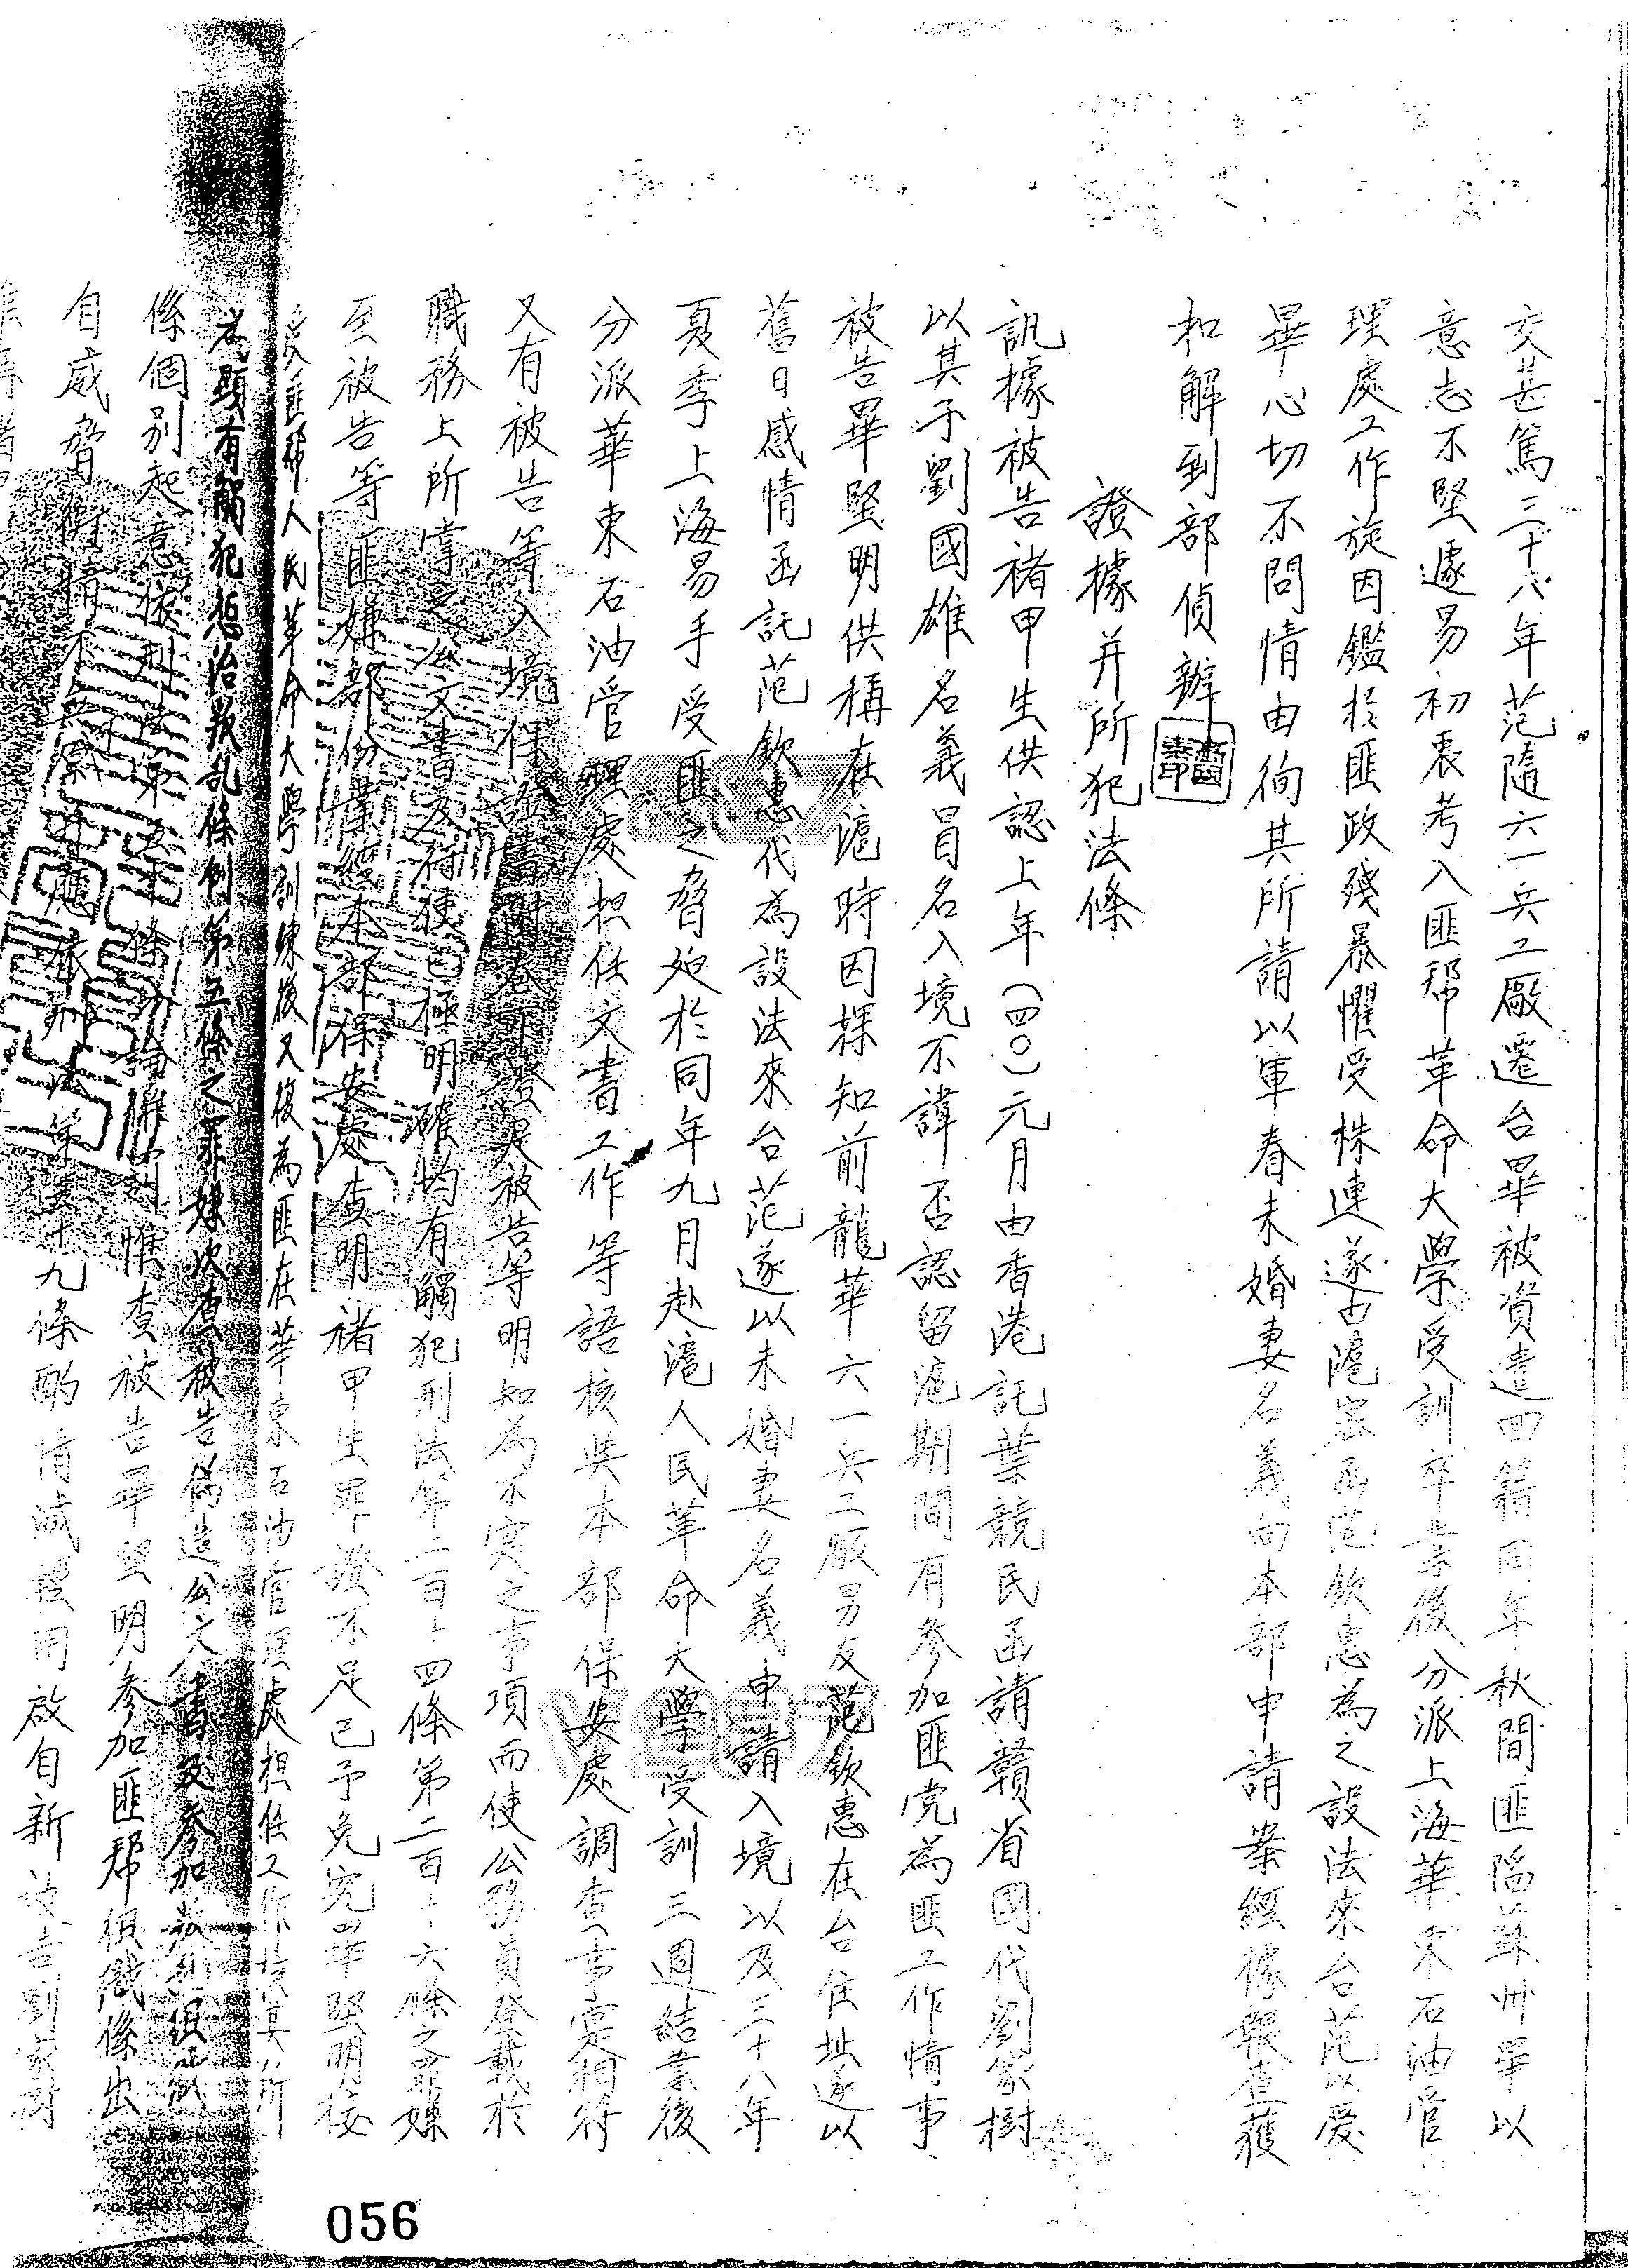 交甚篤三十八年范隨六一兵工廠遷台畢被資遣回籍同年秋間匪陷蘇州畢以
意志不堅遽易初衷考入匪幫革命大學受訓卒業後分派上海華東石油管
理處工作旋因鑑於匪政殘暴懼受株連遂由滬密函范欽惠為之設法來台范以愛
畢心切不問情由徇其所請以軍眷未婚妻名義向本部申請案經據報查獲
和解到部偵辦
證據并所犯法條
訊據被告褚甲生供認上年(四〇)元月由香港託葉競民函請贛省國代劉家樹
以其子劉國雄名義冒名入境不諱否認留滬期間有參加匪党為匪工作情事
被告畢堅明供稱在滬時因探知前龍華六一兵工厰男友范欽惠在台住址遂以
舊日感情函託范欽惠代為設法來台范遂以未婚妻名義申請入境以及三十八年
夏季上海易手受匪之脅廹於同年九月赴滬人民革命大學受訓三週結業後
分派華東石油管理處担任文書工作等語核與本部保安處調查事實相符
又有被告等入境保證書附卷可證是被告等明知為不實之事項而使公務員登載於
職務上所掌之公文書及行使已極明確均有觸犯刑法第二百十四條第二百十六條之罪嫌
至被告等匪嫌部份業經本部保安處查明褚甲生罪證不足已予免究畢堅明接
受匪幫人民革命大學訓練後又復為匪在華東石油管理處担任工作核其所
為顯有觸犯懲治叛乱條例第五條之罪嫌次查被告偽造公文書及參加叛乱組織
係個別起意依刑法第五十條分論併罰惟查被告畢堅明參加匪幫組織係出
自威脅衡情不無可原并應依刑法第五十九條酌情減輕用啟自新被告劉家樹
056